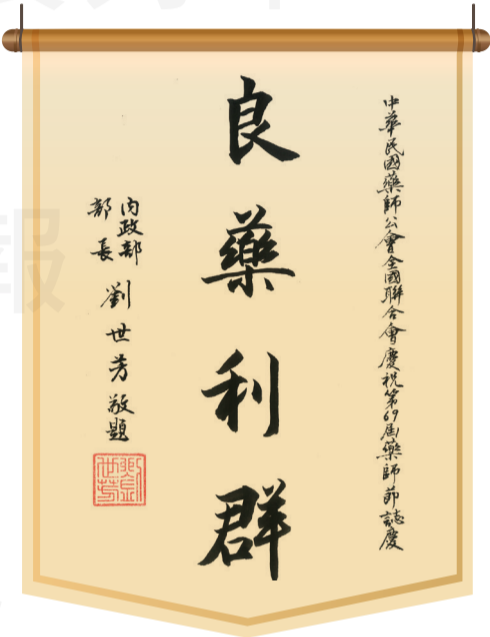 中華民國藥師公會全國聯合會慶祝第69屆藥師節誌慶
良藥利群
內政部
部長
劉世芳敬題
劉世芳
報